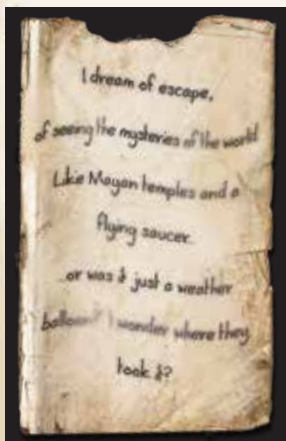 I dream of escape,
of seeing the mysteries of the world
Like Mayan temples and a
flying saucer.
or was it just a weather
balloon? I wonder where they
took it?